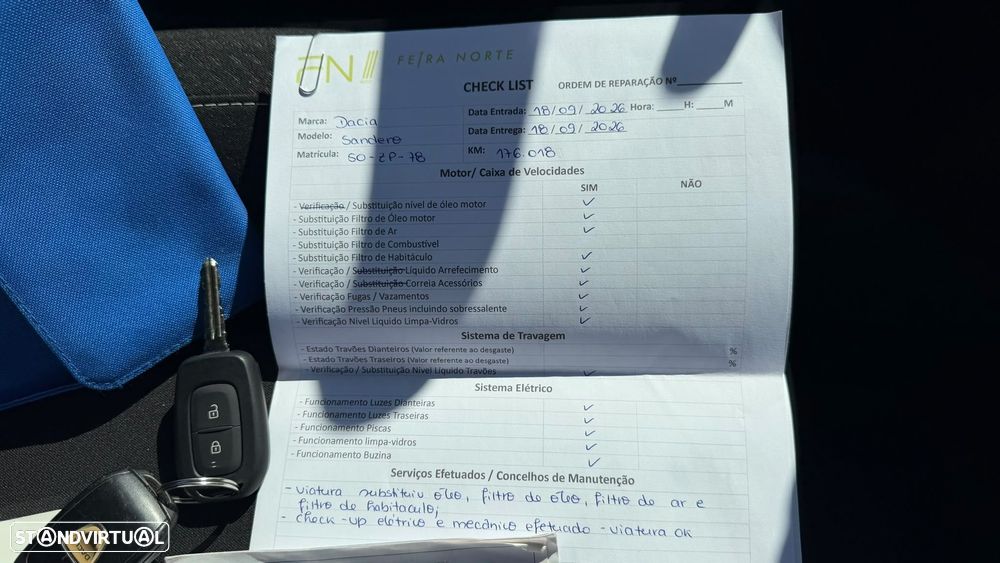 FN FEIRA NORTE
CHECK LIST ORDEM DE REPARAÇÃO Nº
Marca: Dacia Data Entrada: 18/09/2026 Hora: H: M
Modelo: Sandero Data Entrega: 18/09/2026
Matrícula: SO-ZP-78 KM: 176.018
Motor/ Caixa de Velocidades
SIM NÃO
- Verificação / Substituição nível de óleo motor ✓
- Substituição Filtro de Óleo motor ✓
- Substituição Filtro de Ar ✓
- Substituição Filtro de Combustível
- Substituição Filtro de Habitáculo ✓
- Verificação / Substituição Líquido Arrefecimento ✓
- Verificação / Substituição Correia Acessórios ✓
- Verificação Fugas / Vazamentos ✓
- Verificação Pressão Pneus incluindo sobressalente ✓
- Verificação Nível Líquido Limpa-Vidros ✓
Sistema de Travagem
- Estado Travões Dianteiros (Valor referente ao desgaste) %
- Estado Travões Traseiros (Valor referente ao desgaste) %
- Verificação / Substituição Nível Líquido Travões ✓
Sistema Elétrico
- Funcionamento Luzes Dianteiras ✓
- Funcionamento Luzes Traseiras ✓
- Funcionamento Piscas ✓
- Funcionamento limpa-vidros ✓
- Funcionamento Buzina ✓
Serviços Efetuados / Concelhos de Manutenção
- viatura substituiu óleo, filtro de óleo, filtro de ar e
filtro de habitaculo;
- check-up elétrico e mecânico efetuado - viatura ok
STANDVIRTUAL